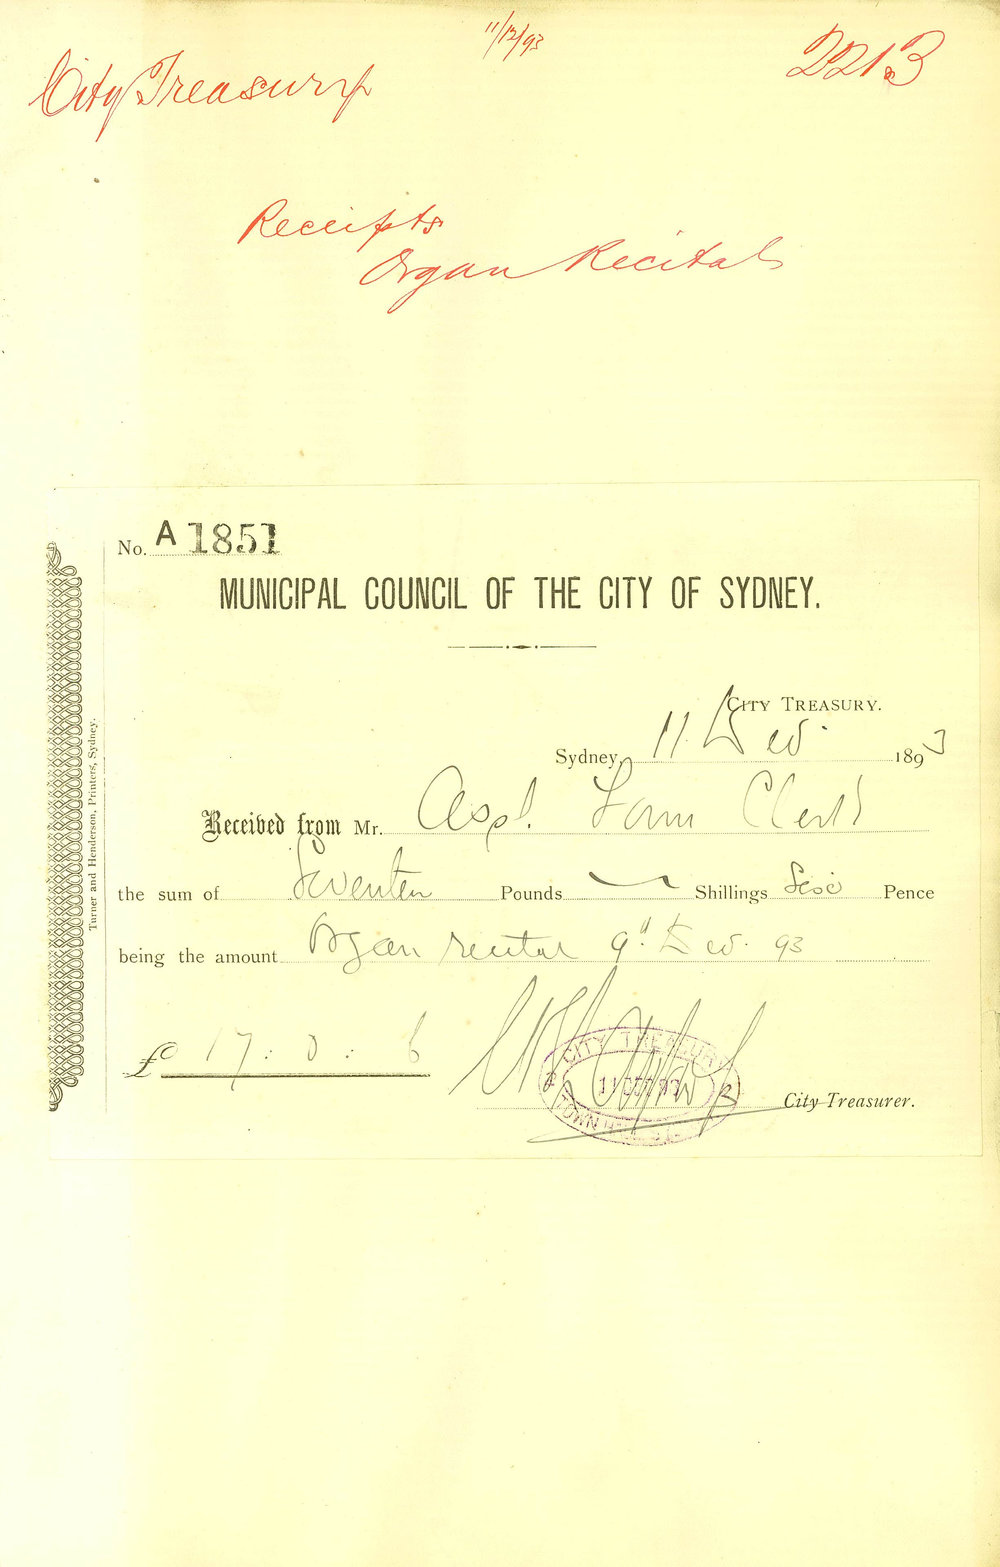 11/12/93
City Treasury 2213
Receipts
Organ Recital
No. A 1851
MUNICIPAL COUNCIL OF THE CITY OF SYDNEY.
CITY TREASURY.
Sydney, 11 Dec. 1893
Received from Mr. Town Clerk
the sum of Seventeen Pounds Shillings Six Pence
being the amount Organ recital 9" Dec. 93
£ 17 : 0 : 6
City Treasurer.
CITY TREASURY
11 DEC 93
TOWN HALL
Turner and Henderson, Printers, Sydney.